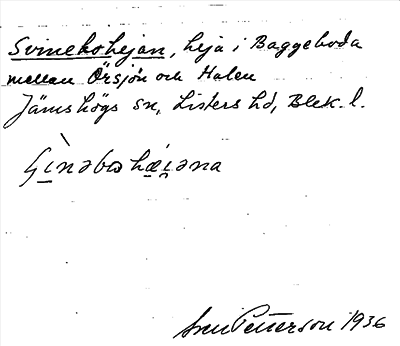 Svinekohejan, heja i Baggeboda
mellan Örsjön och Halen
Jämshögs sn, Listers hd, Blek. l.
Sven Petterson 1936